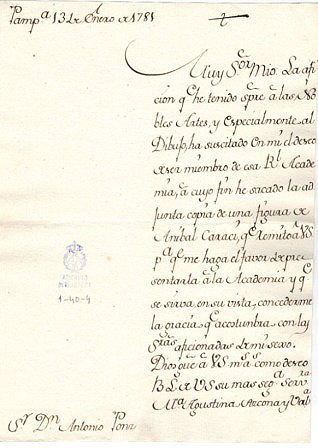 Pamp.ª 13 de Enero de 1781
Muy S.or Mio. La afi
cion q.e he tenido spre a las No
bles Artes, y Especialmente al
Dibujo, ha suscitado en mi el deseo
de ser miembro de esa R.l Acade
mia, a cuyo fin he sacado la ad
junta copia de una figura de
Anibal Caraci, q.e remito a VS
p.a q.e me haga el favor de pre
sentarla à la Academia y q.e
se sirva, en su vista, concederme
la gracia q.e accostumbra con las
S.ras aficionadas de mi sexo.
Dios gue a VS m.s a.s como deseo
B L M de VS su mas seg.a Serv.ra
M.a Agustina Azcona y Val
S.r D.n Antonio Ponz
1-40-4